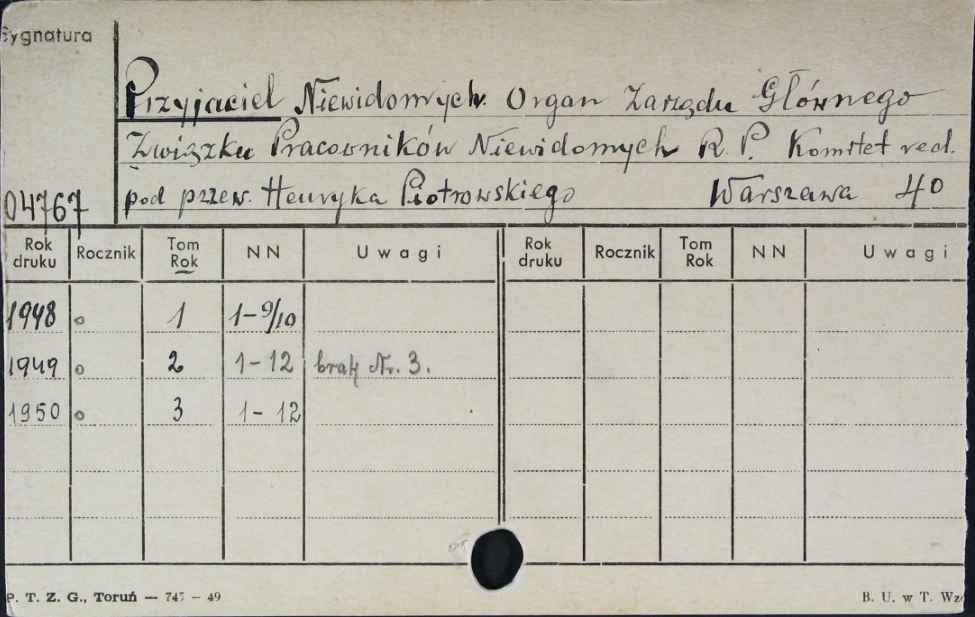 Sygnatura
Przyjaciel Niewidomych. Organ Zarządu Głównego
Związku Pracowników Niewidomych R. P. Komitet red.
04767 pod przew. Henryka Piotrowskiego Warszawa 40
Rok druku Rocznik Tom Rok NN Uwagi Rok druku Rocznik Tom Rok NN Uwagi
1948 o 1 1-9/10
1949 o 2 1-12 brak Nr. 3.
1950 o 3 1-12
P. T. Z. G., Toruń — 747 — 49 B. U. w T. Wz